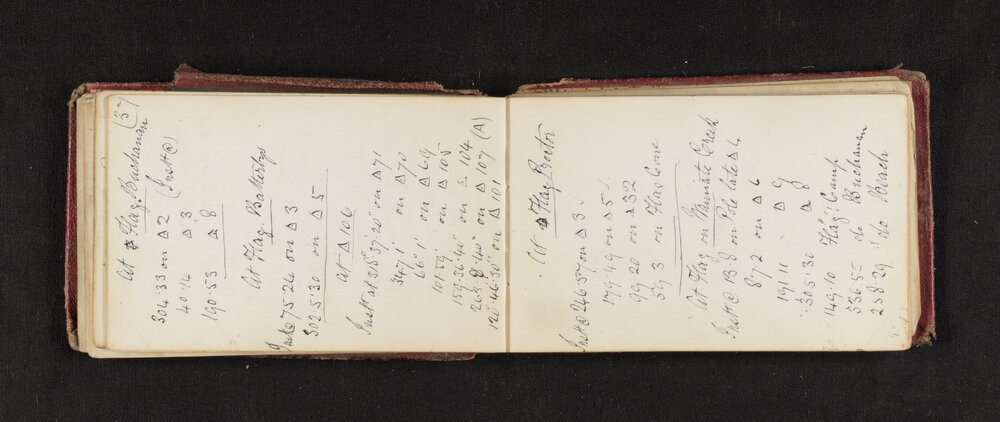 At Flag Buchanan (37
304·33 on Δ 2 (Inst@)
40·14 Δ 3
190·53 Δ 8
At Flag Battersby
Inst@ 75·24 on Δ 3
302·5'·30 on Δ 5
At Δ 106
Inst at 318°·37'·20" on Δ 71
347·1' on Δ 70
66·1' on Δ 69
101·59' on Δ 105
159·36'·40" Δ 104
268·8'·40" on Δ 107 (A)
120·46·30" on Δ 101
At Flag Proctor
Inst@ 246·57 on Δ 3
179·49 on Δ 5
99·20 on Δ 32
59·3 on Flag Cone
At Flag on Creek
Inst@ 13·8 on Pole late Δ 4
87·2 on Δ 6
191·11 Δ 9
305·30 Δ 8
149·10 Flag Camp
336·55 do Buchanan
258·29 do Beach